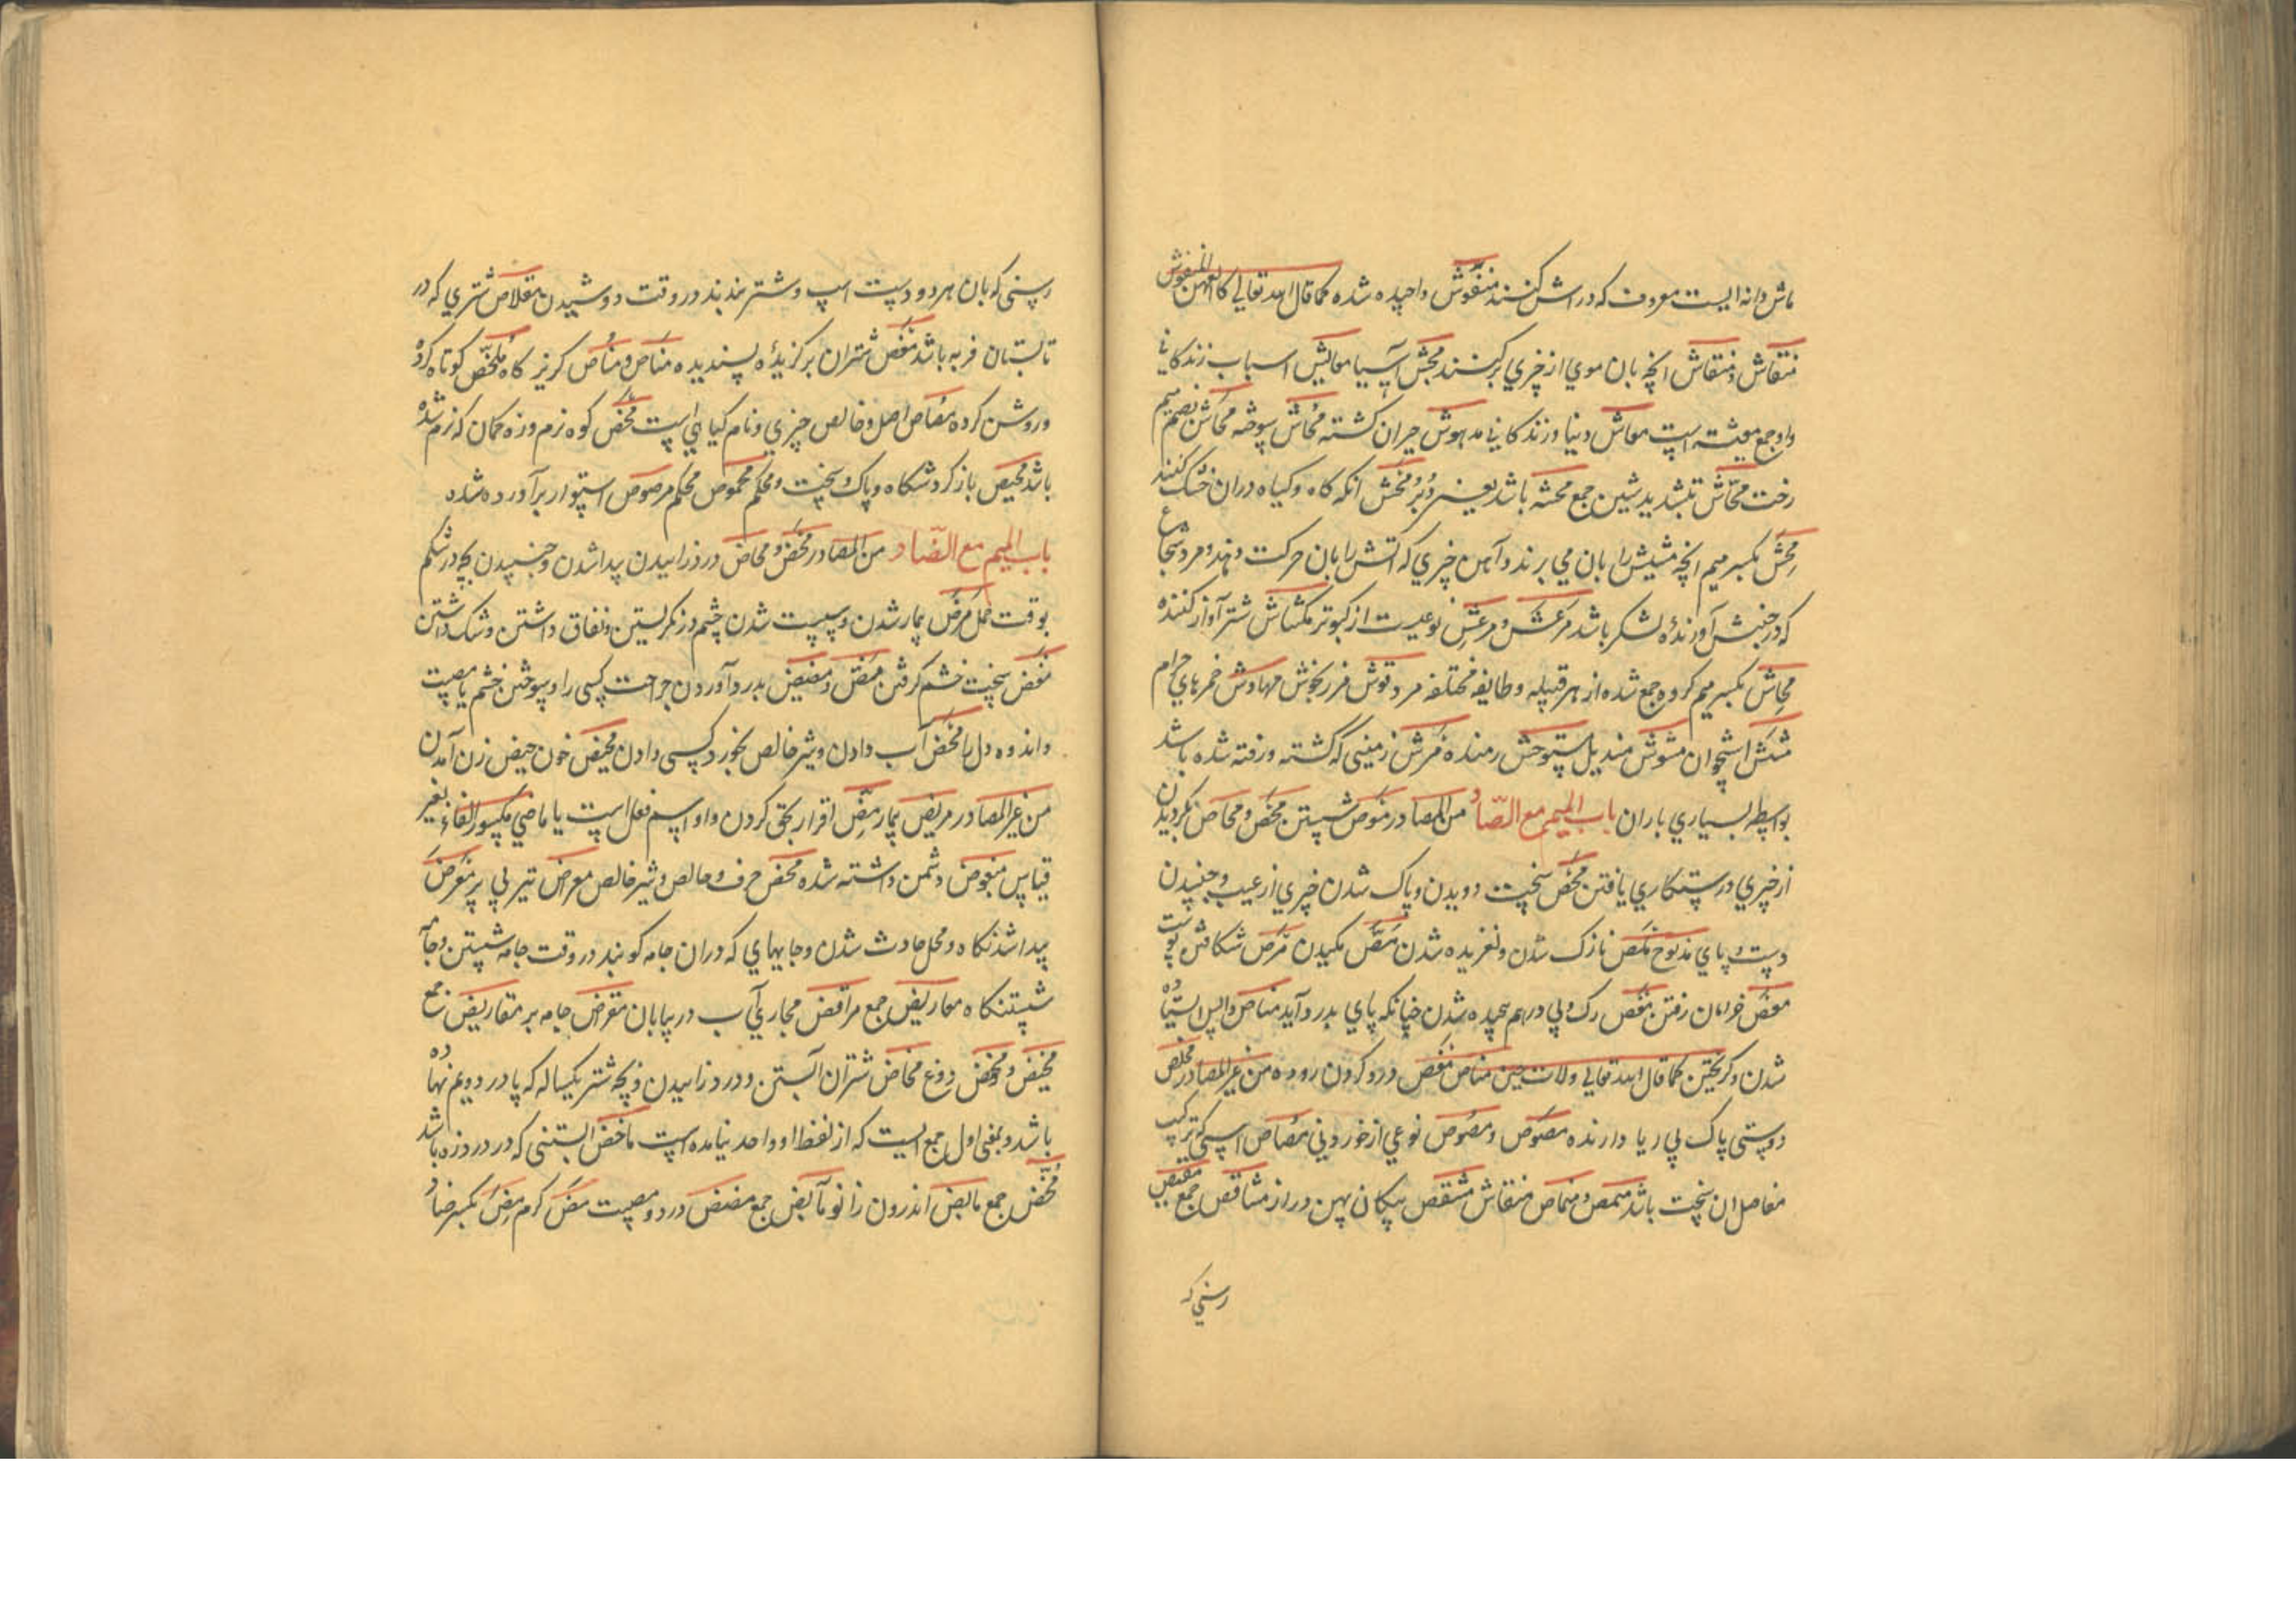 ماش دانه ایست معروف که در اش کنند منفوش واچیده شده کما قال الله تعالی کالعهن المنفوش
منقاش و منقاش انچه بان موی از چیزی برکنند مجش آسیا معایش اسباب زندکانی
واو جمع معیشة است معاش دنیا و زندکانی مدهوش حیران کشته محاش سوخته محاش بضم میم
رخت محاش بتشدید شین جمع محشه باشد یعنی دُبُر محش انکه کاه و کیاه دران خشک کنند
محش بکسر میم انچه شیش را بان می برند و آهن چیزی که اتش را بان حرکت دهند و مرد شجاع
که در جنبش آورندهٔ لشکر باشد مرعش و مرعش نوعیست از کبوتر مکشاش شتر آواز کننده
محاش بکسر میم کروه جمع شده از هر قبیله و طایفه مختلفه مردقوش مرزنجوش مهاوش خمرهای حرام
مشش استخوان مشوش مندیل مستوحش رمنده مرش زمینی که کشته و رفته شده باشد
بواسطه بسیاری باران باب المیم مع الصّاد من المصادر موص شستن محص و محاص نکردیدن
از چیزی و رستکاری یافتن محص سخت دویدن و پاک شدن چیزی از عیب و جنبیدن
دست و پای مذبوح ملص نازک شدن و لغزیده شدن مصّ مکیدن مرص شکافتن پوست
معص خرامان رفتن مغص رک و پی درهم پیچیده شدن چنانکه پای بدرد آید مناص واپس ایستاده
شدن و کریختن کما قال الله تعالی ولات حین مناص مغص درد کردن روده من غیر المصادر مخلص
دوستی پاک بی ریا دارنده مصوص و مصوص نوعی از خوردنی مصاص اسبی که ترکیب
مفاصل ان سخت باشد منمص و منماص منقاش مشقص پیکان پهن دراز مشاقص جمع
رسنی که
رسنی که بان هر دو دست اسپ و شتر بندند در وقت دوشیدن مقلاص شتری که در
تابستان فربه باشد مغص شتران برکزیدهٔ پسندیده مناص و مناص کریزکاه ملخص کوتاه کرده
و روشن کرده مصاص اصل و خالص چیزی و نام کیاهی است محص کوه نرم و زه کمان که نرم شده
باشد محیص باز کردشکاه و پاک و سخت و محکم محموص محکم مرصوص استوار برآورده شده
باب المیم مع الضّاد من المصادر مخض و مخاض درد زاییدن پیدا شدن و جنبیدن بچه در شکم
بوقت حمل مرض بیمار شدن و سست شدن چشم در نکریستن و نفاق داشتن و شک داشتن
مغض سخت خشم کرفتن مض و مضیض بدرد آوردن جراحت کسی را و سوختن خشم یا مصیبت
و اندوه دل را محض آب دادن و شیر خالص بخورد کسی دادن محیض خون حیض زن آمدن
من غیر المصادر مریض بیمار مضّ اقرار بحق کردن و او اسم فعل است یا ماضی مکسور الفاء بغیر
قیاس مبغوض دشمن داشته شده محض صرف و خالص و شیر خالص معراض تیر بی پر معرض
پیدا شدنکاه و محل حادث شدن و جایهای که دران جامه کوبند در وقت جامه شستن و جامه
شستنکاه معاریض جمع مراقض مجاری آب در بیابان مقراض جامه بر مقاریض جمع
مخیض و مخض دوغ مخاض شتران آبستن و درد زاییدن و بچه شتر یکساله که پا در دویم نهاده
باشد و بمعنی اول جمع ایست که از لفظ او واحد نیامده است ماخض ابستنی که در درد زه باشد
مخّض جمع مابض اندرون زانو مآبض جمع مضض درد و مصیبت مضّ کرم مضّ بکسر ضاد